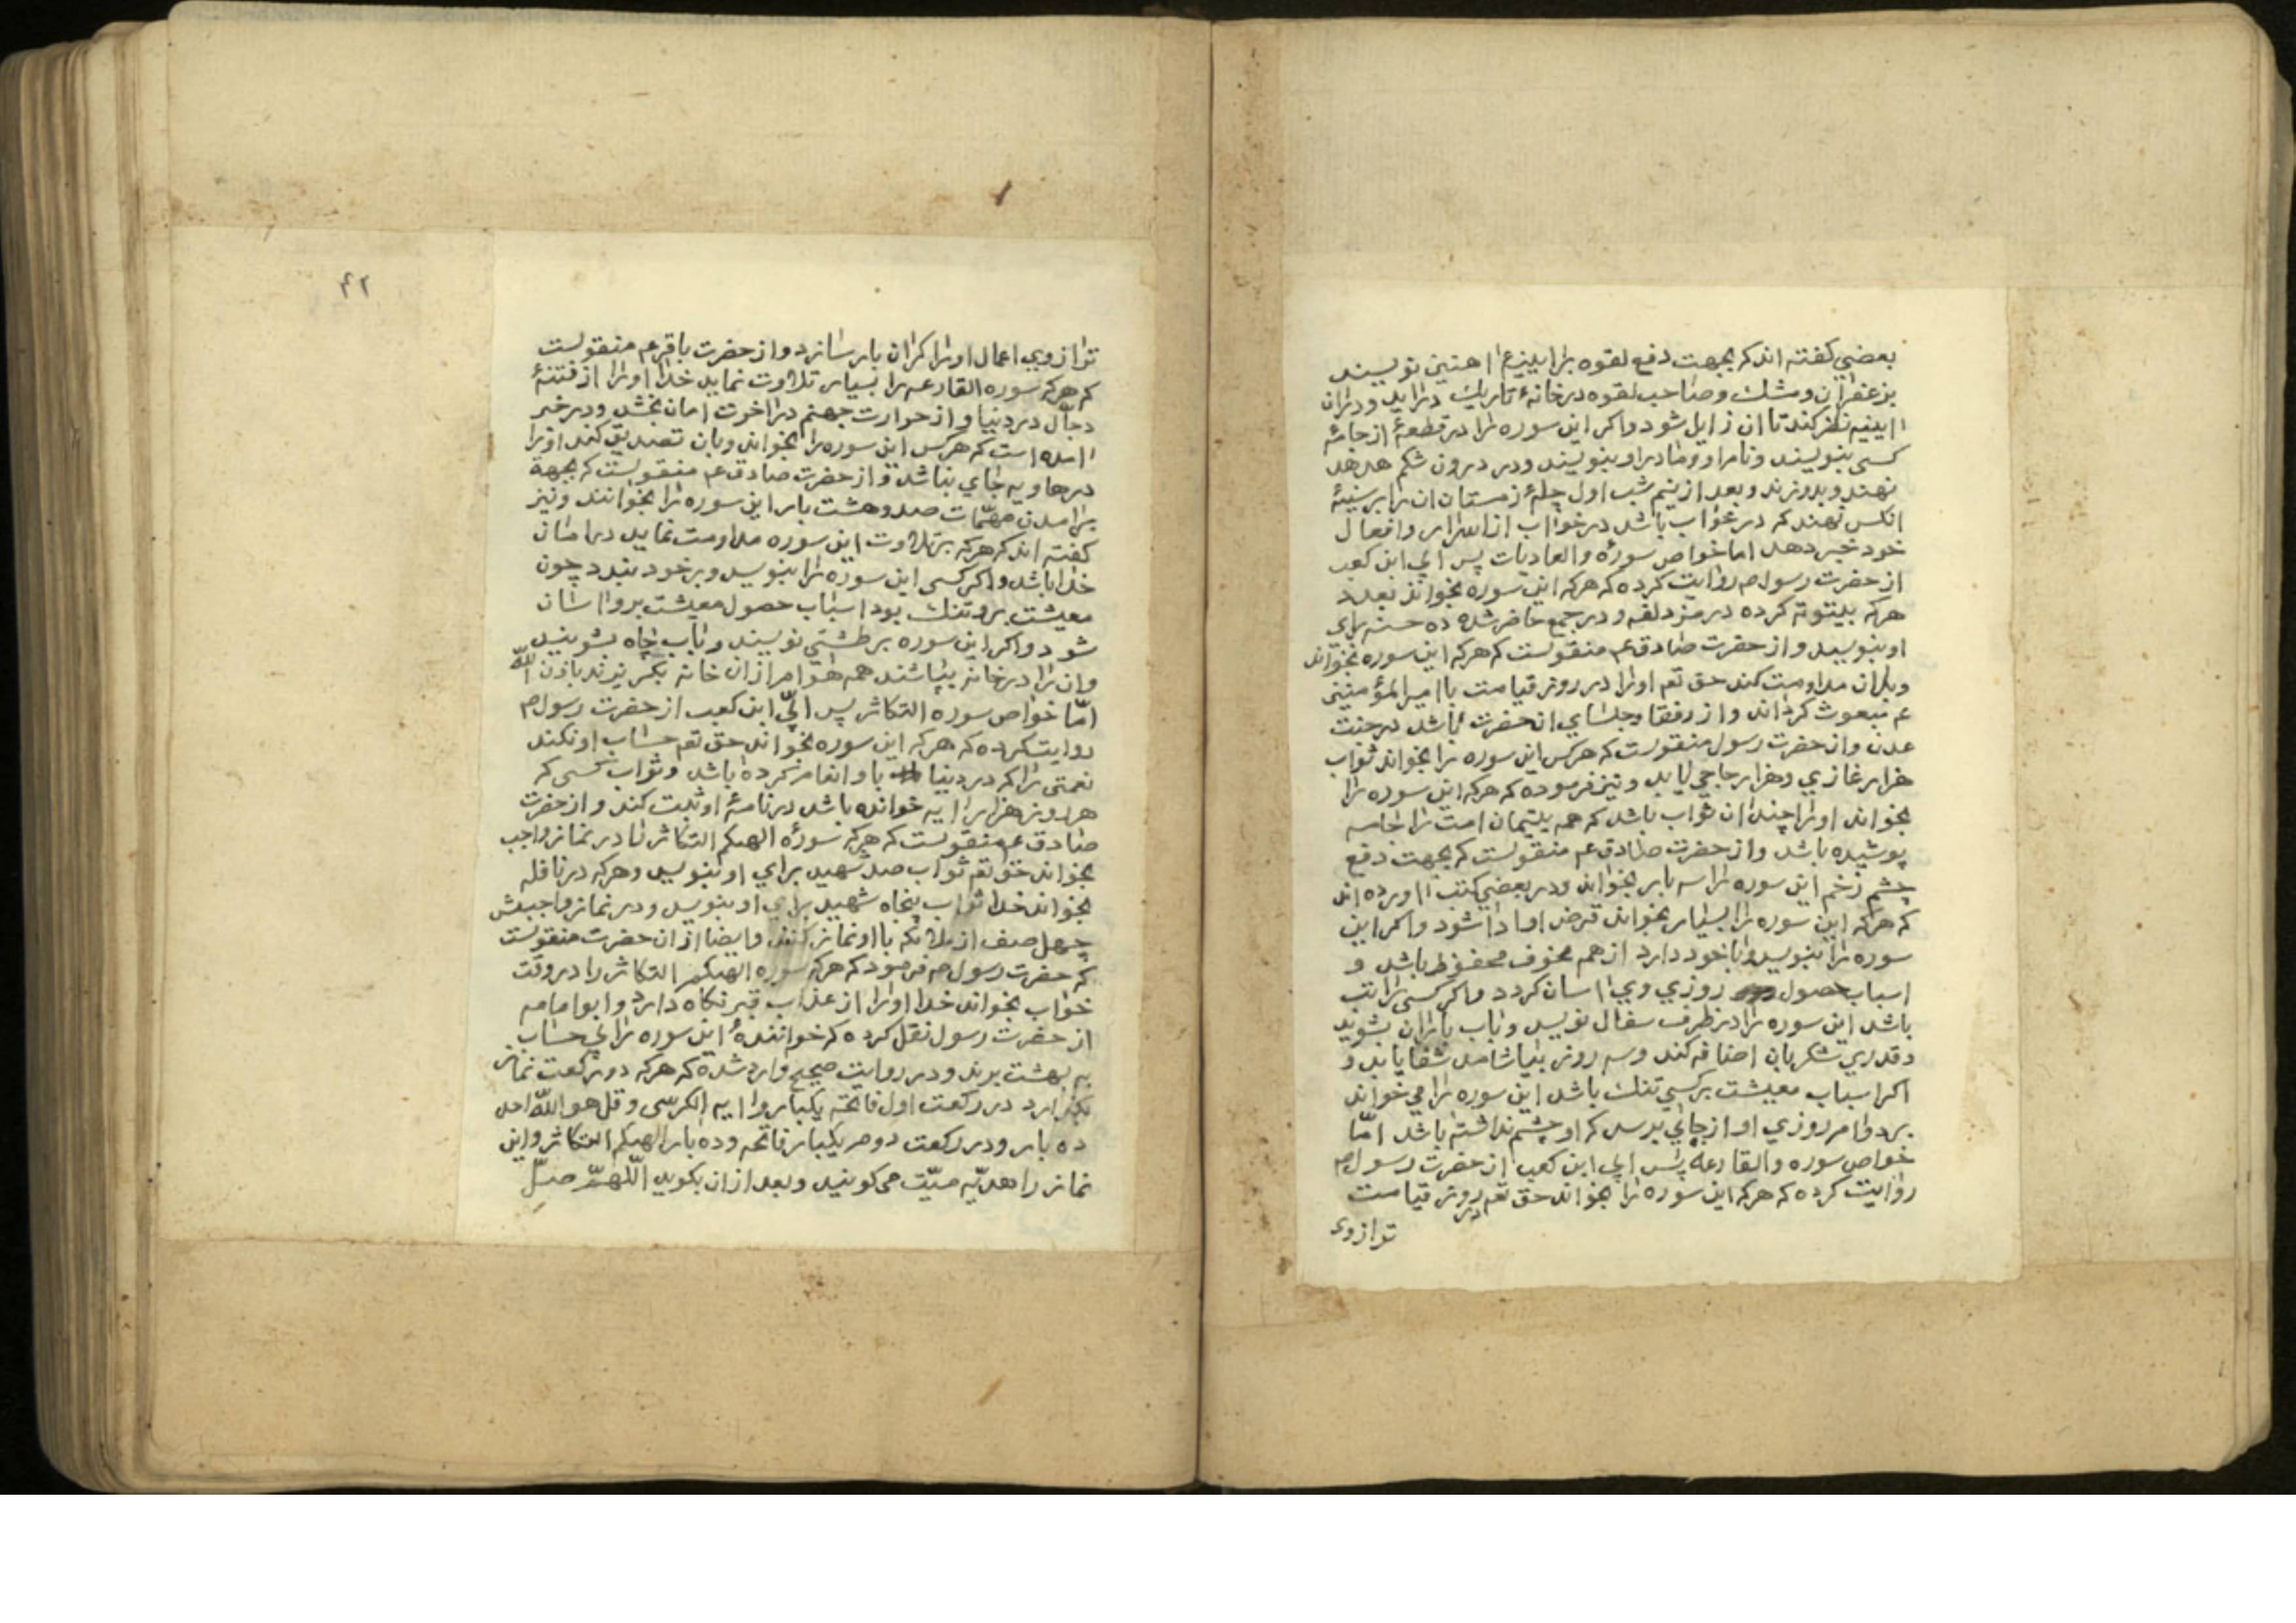 بعضي كفته اند كه بجهت دفع لقوه برا يينهٔ اهنين نويسند
بزعفران ومشك وصاحب لقوه در خانهٔ تاريك درايد ودران
ايينه نظر كند تا ان زايل شود واكر اين سوره را در قطعهٔ از جامهٔ
كسى بنويسند ونام او ومادر او بنويسند ودر درون شكم هدهد
نهند وبدوزند وبعد از نيم شب اول چلهٔ زمستان ان را بر سينهٔ
انكس نهند كه در خواب باشد در خواب از اسرار وافعال
خود خبر دهد اما خواص سورهٔ والعاديات پس ابي ابن كعب
از حضرت رسول ص روايت كرده كه هركه اين سوره بخواند بعدد
هركه بيتوته كرده در مزدلفه ودر جمع حاضر شده ده حسنه براي
او بنويسد واز حضرت صادق عم منقولست كه هركه اين سوره بخواند
وبران مداومت كند حق تعم اورا در روز قيامت با امير المؤمنين
عم مبعوث كرداند واز رفقا وجلساي انحضرت باشد در جنت
عدن واز حضرت رسول منقولست كه هركس اين سوره را بخواند ثواب
هزار غازي وهزار حاجي يابد ونيز فرموده كه هركه اين سوره را
بخواند اورا چندان ثواب باشد كه همه يتيمان امت را جامه
پوشيده باشد واز حضرت صادق عم منقولست كه بجهت دفع
چشم زخم اين سوره را سه بار بخواند ودر بعضي كتب اورده اند
كه هركه اين سوره را بسيار بخواند قرض او ادا شود واكر اين
سوره را بنويسد وبا خود دارد از همه مخوف محفوظ باشد و
اسباب حصول روزي وي اسان كردد واكر كسى را تب
باشد اين سوره را در ظرف سفال نويسد وباب باران بشويد
وقدري شكر بان اضافه كند وسه روز بياشامد شفا يابد و
اكر اسباب معيشت بر كسي تنك باشد اين سوره را مي خواند
بر دوام روزي او از جائي برسد كه او چشم نداشته باشد امّا
خواص سوره والقارعه پس ابي ابن كعب از حضرت رسول ص
روايت كرده كه هركه اين سوره را بخواند حق تعم در روز قيامت
ترازوى
۴۲
ترازوي اعمال اورا كران بار سازد واز حضرت باقر عم منقولست
كه هركه سوره القارعه را بسيار تلاوت نمايد خدا اورا از فتنهٔ
دجّال در دنيا واز حرارت جهنم در اخرت امان بخشد ودر خبر
امده است كه هركس اين سوره را بخواند وبان تصديق كند اورا
در هاويه جاي نباشد واز حضرت صادق عم منقولست كه بجهة
برامدن مهمّات صد وهشت بار اين سوره را بخوانند ونيز
كفته اند كه هركه بتلاوت اين سوره مداومت نمايد در امان
خدا باشد واكر كسى اين سوره را بنويسد وبر خود بندد چون
معيشت برو تنك بود اسباب حصول معيشت برو اسان
شود واكر اين سوره بر طشتي نويسند وباب چاه بشويند
وان را در خانه بپاشند همه هوام از ان خانه بكريزند باذن الله
امّا خواص سوره التكاثر پس ابيّ ابن كعب از حضرت رسول ص
روايت كرده كه هركه اين سوره بخواند حق تعم حساب او نكند
نعمتى را كه در دنيا باو انعام كرده باشد وثواب كسى كه
هر روز هزار ايه خوانده باشد در نامهٔ او ثبت كند واز حضرت
صادق عم منقولست كه هركه سورهٔ الهيكم التكاثر را در نماز واجب
بخواند حق تعم ثواب صد شهيد براي او بنويسد وهركه در نافله
بخواند خدا ثواب پنجاه شهيد براي او بنويسد ودر نماز واجبش
چهل صف از ملائكه با او نماز كنند وايضا از ان حضرت منقولست
كه حضرت رسول ص فرمود كه هركه سوره الهيكم التكاثر را در وقت
خواب بخواند خدا اورا از عذاب قبر نكاه دارد وابو امامه
از حضرت رسول نقل كرده كه خوانندهٔ اين سوره را بي حساب
به بهشت برند ودر روايت صحيح وارد شده كه هركه دو ركعت نماز
بكزارد در ركعت اول فاتحه يكبار وايه الكرسى وقل هو الله احد
ده بار ودر ركعت دوم يكبار فاتحه وده بار الهيكم التكاثر واين
نماز را هديّه ميّت مي كويند وبعد از ان بكويد اللّهمّ صلّ